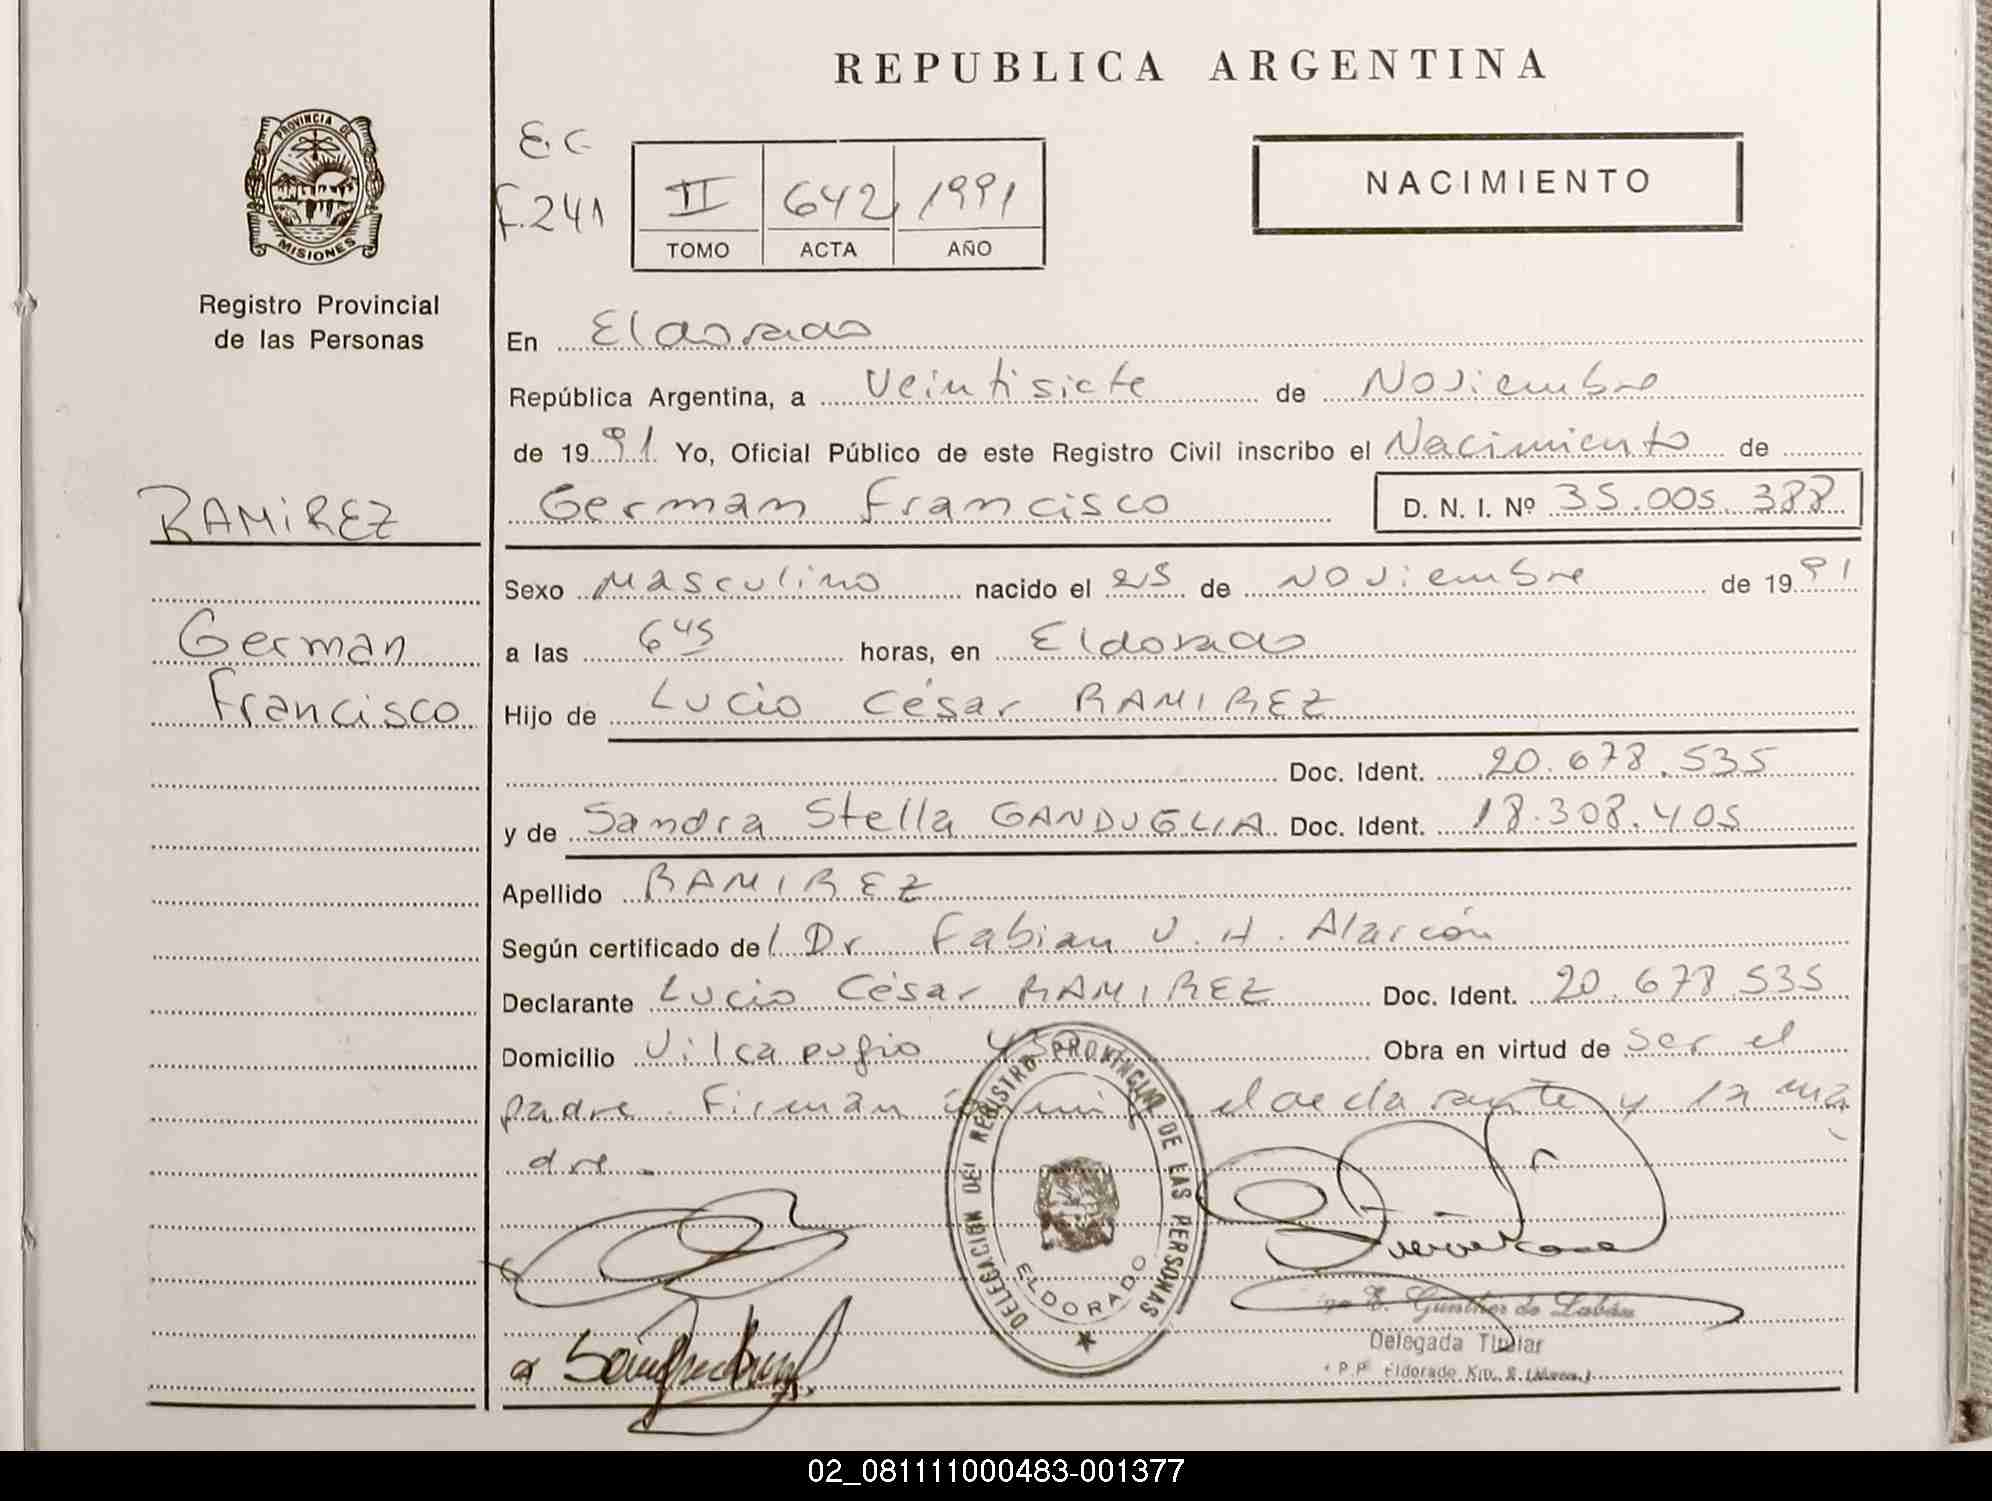 REPUBLICA ARGENTINA
PROVINCIA DE
MISIONES
Registro Provincial
de las Personas
E.C
F.241
II 642 1991
TOMO ACTA AÑO
NACIMIENTO
En Eldorado
República Argentina, a Veintisiete de Noviembre
de 1991 Yo, Oficial Público de este Registro Civil inscribo el Nacimiento de
RAMIREZ
German Francisco D. N. I. Nº 35.005.388
Sexo Masculino nacido el 25 de Noviembre de 1991
German
a las 6 45 horas, en Eldorado
Francisco
Hijo de Lucio César RAMIREZ
Doc. Ident. 20.678.535
y de Sandra Stella GANDUGLIA Doc. Ident. 18.308.405
Apellido RAMIREZ
Según certificado del Dr Fabian V. H. Alarcón
Declarante Lucio César RAMIREZ Doc. Ident. 20.678.535
Domicilio Vilcapugio Obra en virtud de ser el
padre. Firman el declarante y la ma
dre.
DELEGACION DEL REGISTRO PROVINCIAL DE LAS PERSONAS
ELDORADO
E. Gunther de Labán
Delegada Titular
Eldorado Km.
02_081111000483-001377